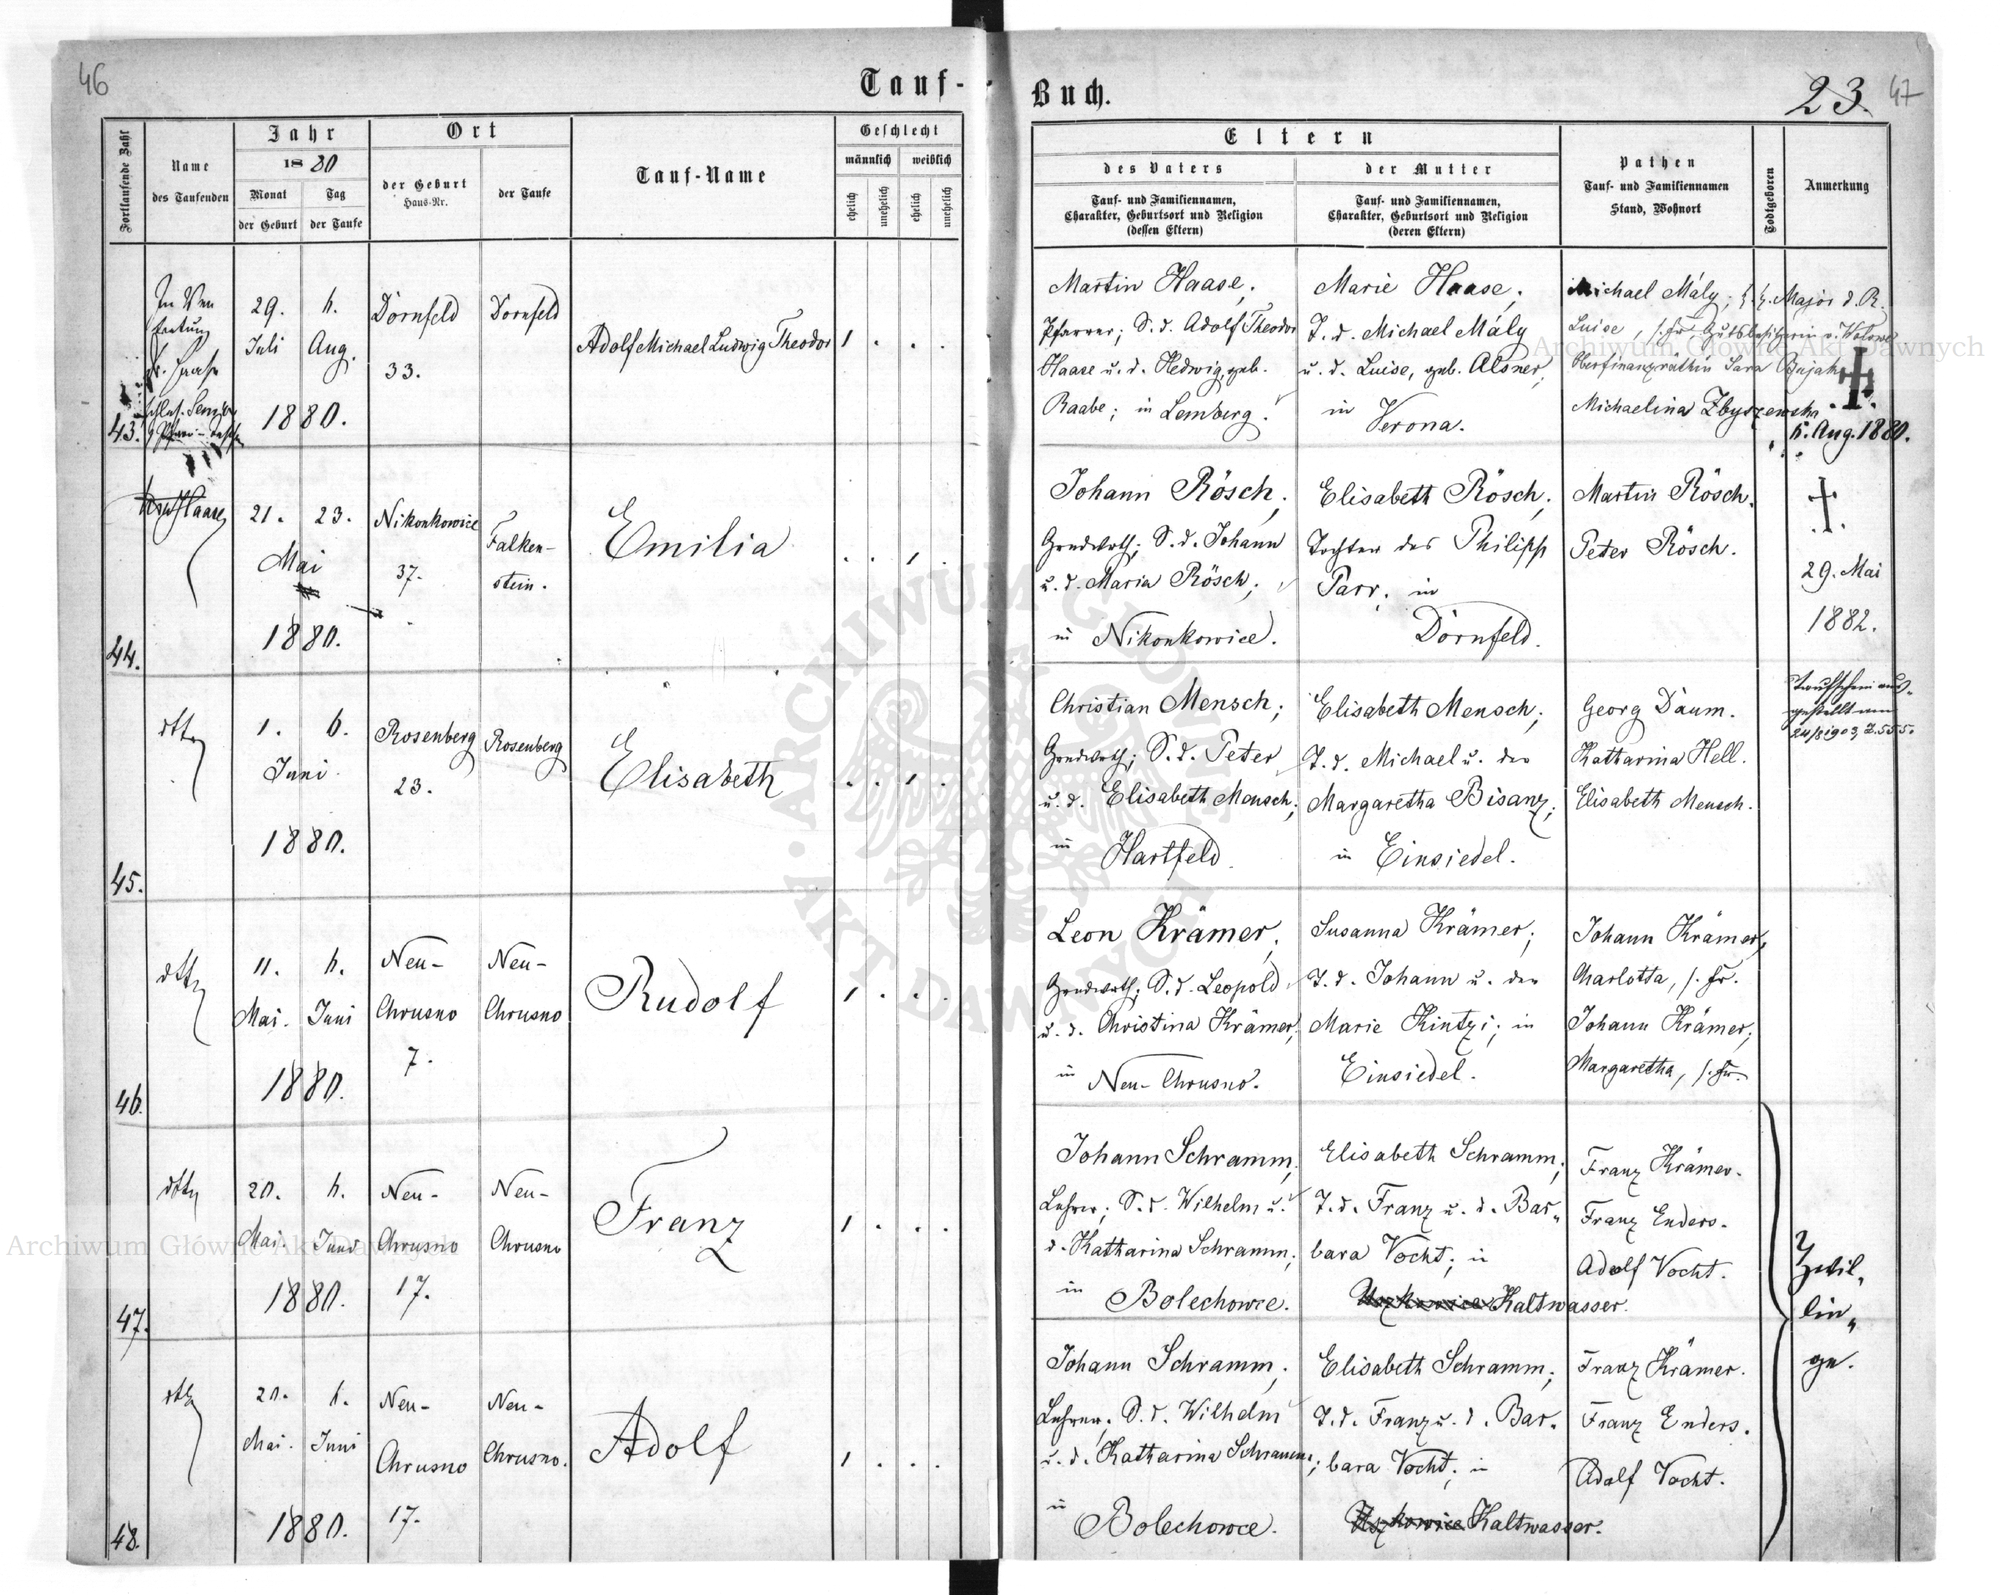 46
Tauf-
Buch.
23.
47
Fortlaufende Zahl
Name
des Taufenden
Jahr
1880
Monat
der Geburt
Tag
der Taufe
Ort
der Geburt
Haus-Nr.
der Taufe
Tauf-Name
Geschlecht
männlich
weiblich
ehelich
unehelich
ehelich
unehelich
Eltern
des Vaters
Tauf- und Familiennamen,
Charakter, Geburtsort und Religion
(dessen Eltern)
der Mutter
Tauf- und Familiennamen,
Charakter, Geburtsort und Religion
(deren Eltern)
Pathen
Tauf- und Familiennamen
Stand, Wohnort
Todtgeboren
Anmerkung
43.
29.
Juli
Aug.
1880.
Dornfeld
33.
Dornfeld
Adolf Michael Ludwig Theodor
1 . . .
Martin Haase,
Pfarrer; S. d. Adolf Theodor
Haase u. d. Hedwig, geb.
Raabe; in Lemberg.
Marie Haase;
T. d. Michael Mály
u. d. Luise, geb. Alsner,
in
Verona.
Michael Mály; k. k. Major d. R.
Luise, s. Fr. Gutsbesitzerin
Oberfinanzräthin
Michaelina Zbyszewska.
Aug. 1880.
44.
Haase
21. 23.
Mai
1880.
Nikonkowice
37.
Falken-
stein.
Emilia
. . 1 .
Johann Rösch,
Grndwrth; S. d. Johann
u. d. Maria Rösch;
in Nikonkowice.
Elisabeth Rösch;
Tochter des Philipp
Parr; in
Dornfeld.
Martin Rösch.
Peter Rösch.
29. Mai
1882.
45.
dtto
1. 6.
Juni
1880.
Rosenberg
23.
Rosenberg
Elisabeth
. . 1 .
Christian Mensch;
Grndwrth; S. d. Peter
u. d. Elisabeth Mensch;
in Hartfeld.
Elisabeth Mensch;
T. d. Michael u. der
Margaretha Bisanz;
in Einsiedel.
Georg Daum.
Katharina Hell.
Elisabeth Mensch.
Taufschein aus-
gestellt am
24/8 1903, Z. 555.
46.
dtto
11. 6.
Mai. Juni
1880.
Neu-
Chrusno
7.
Neu-
Chrusno
Rudolf
1 . . .
Leon Krämer,
Grndwrth; S. d. Leopold
u. d. Christina Krämer;
in Neu-Chrusno.
Susanna Krämer;
T. d. Johann u. der
Marie Kintzi; in
Einsiedel.
Johann Krämer,
Charlotta, s. Fr.
Johann Krämer;
Margaretha, s. Fr.
47.
dtto
20. 6.
Mai. Juni
1880.
Neu-
Chrusno
17.
Neu-
Chrusno
Franz
1 . . .
Johann Schramm,
Lehrer; S. d. Wilhelm u.
d. Katharina Schramm;
in Bolechowce.
Elisabeth Schramm;
T. d. Franz u. d. Bar-
bara Vocht; in
Kaltwasser.
Franz Krämer.
Franz Enders.
Adolf Vocht.
Zwil-
lin-
ge.
48.
dtto
20. 6.
Mai. Juni
1880.
Neu-
Chrusno
17.
Neu-
Chrusno.
Adolf
1 . . .
Johann Schramm;
Lehrer. S. d. Wilhelm
u. d. Katharina Schramm;
in Bolechowce.
Elisabeth Schramm;
T. d. Franz u. d. Bar-
bara Vocht; in
Kaltwasser.
Franz Krämer.
Franz Enders.
Adolf Vocht.
Archiwum Główne Akt Dawnych
Archiwum Główne Akt Dawnych
ARCHIWUM GŁÓWNE AKT DAWNYCH